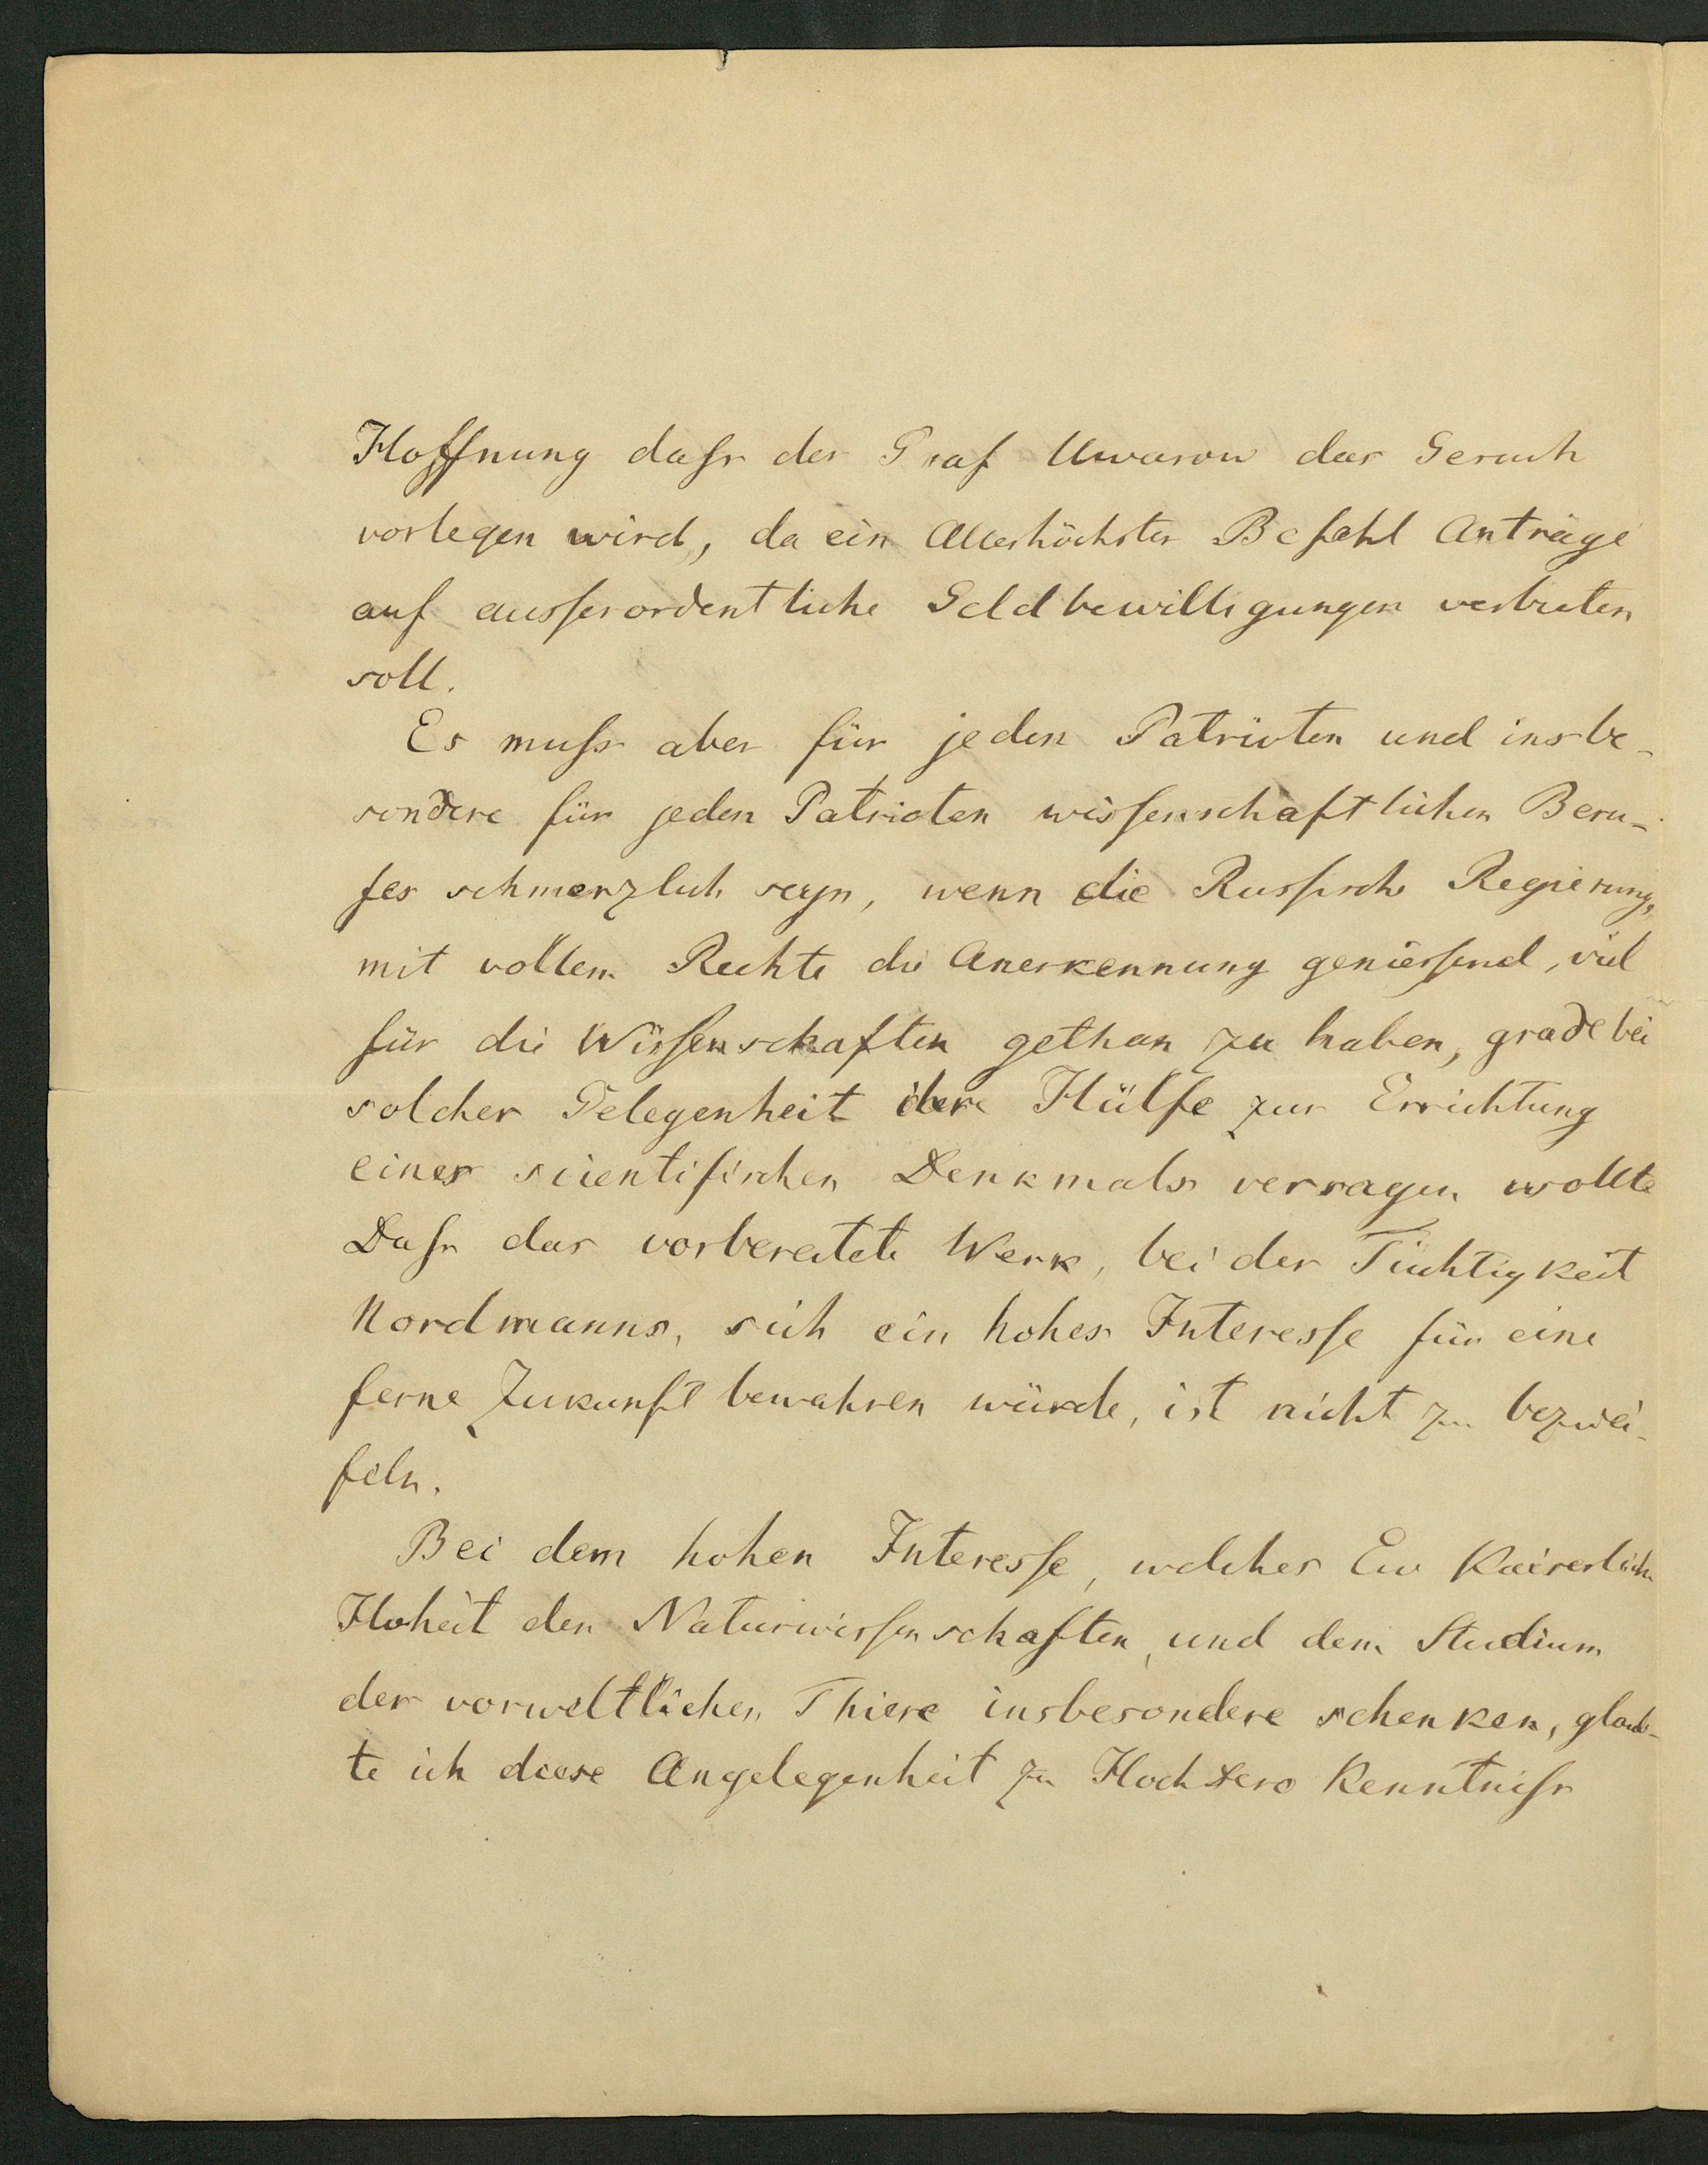 Hoffnung dass der Graf Uwarow das Gesuch
vorlegen wird, da ein Allerhöchster Befehl Anträge
auf ausserordentliche Geldbewilligungen verbieten
soll.
Es muss aber für jeden Patrioten und insbe-
sondere für jeden Patrioten wissenschaftlichen Beru-
fes schmerzlich seyn, wenn die Russische Regierung,
mit vollem Rechte die Anerkennung geniessend, viel
für die Wissenschaften gethan zu haben, grade bei
solcher Gelegenheit ihre Hülfe zur Errichtung
eines scientifischen Denkmals versagen wollte
Dass das vorbereitete Werk, bei der Tüchtigkeit
Nordmanns, sich ein hohes Interesse für eine
ferne Zukunft bewahren würde, ist nicht zu bezwei-
feln.
Bei dem hohen Interesse, welches Ew Kaiserliche
Hoheit den Naturwissenschaften, und dem Studium
der vorweltlichen Thiere insbesondere schenken, glaub-
te ich diese Angelegenheit zu Hochdero Kenntniss